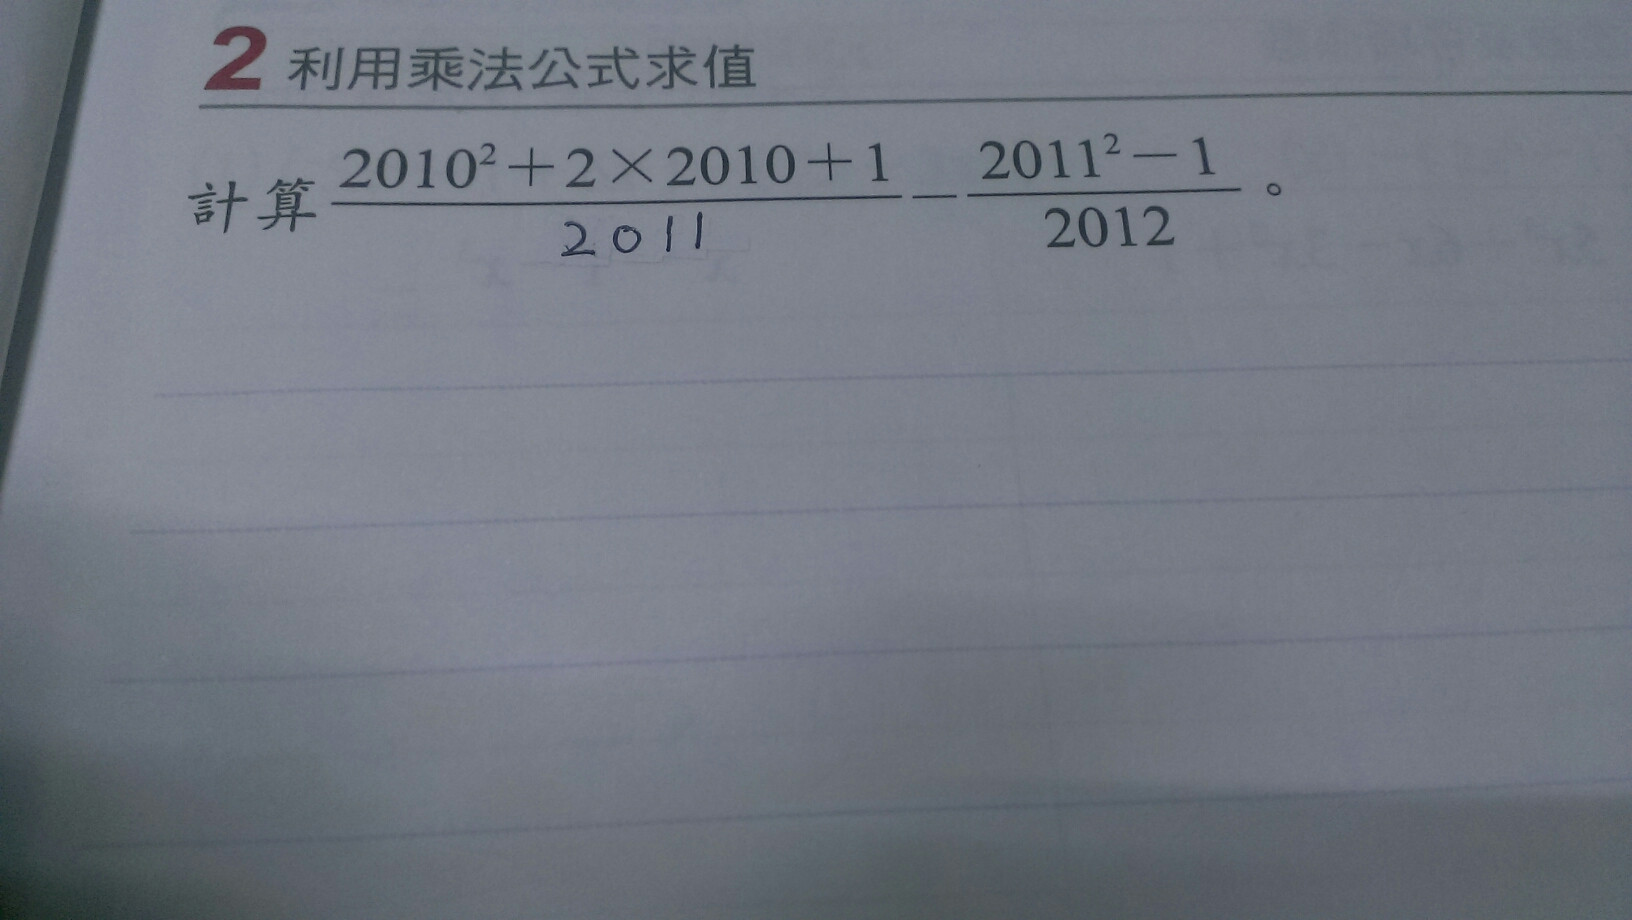 2 利用乘法公式求值
計算 \frac{2010²+2×2010+1}{2011} － \frac{2011²－1}{2012} 。